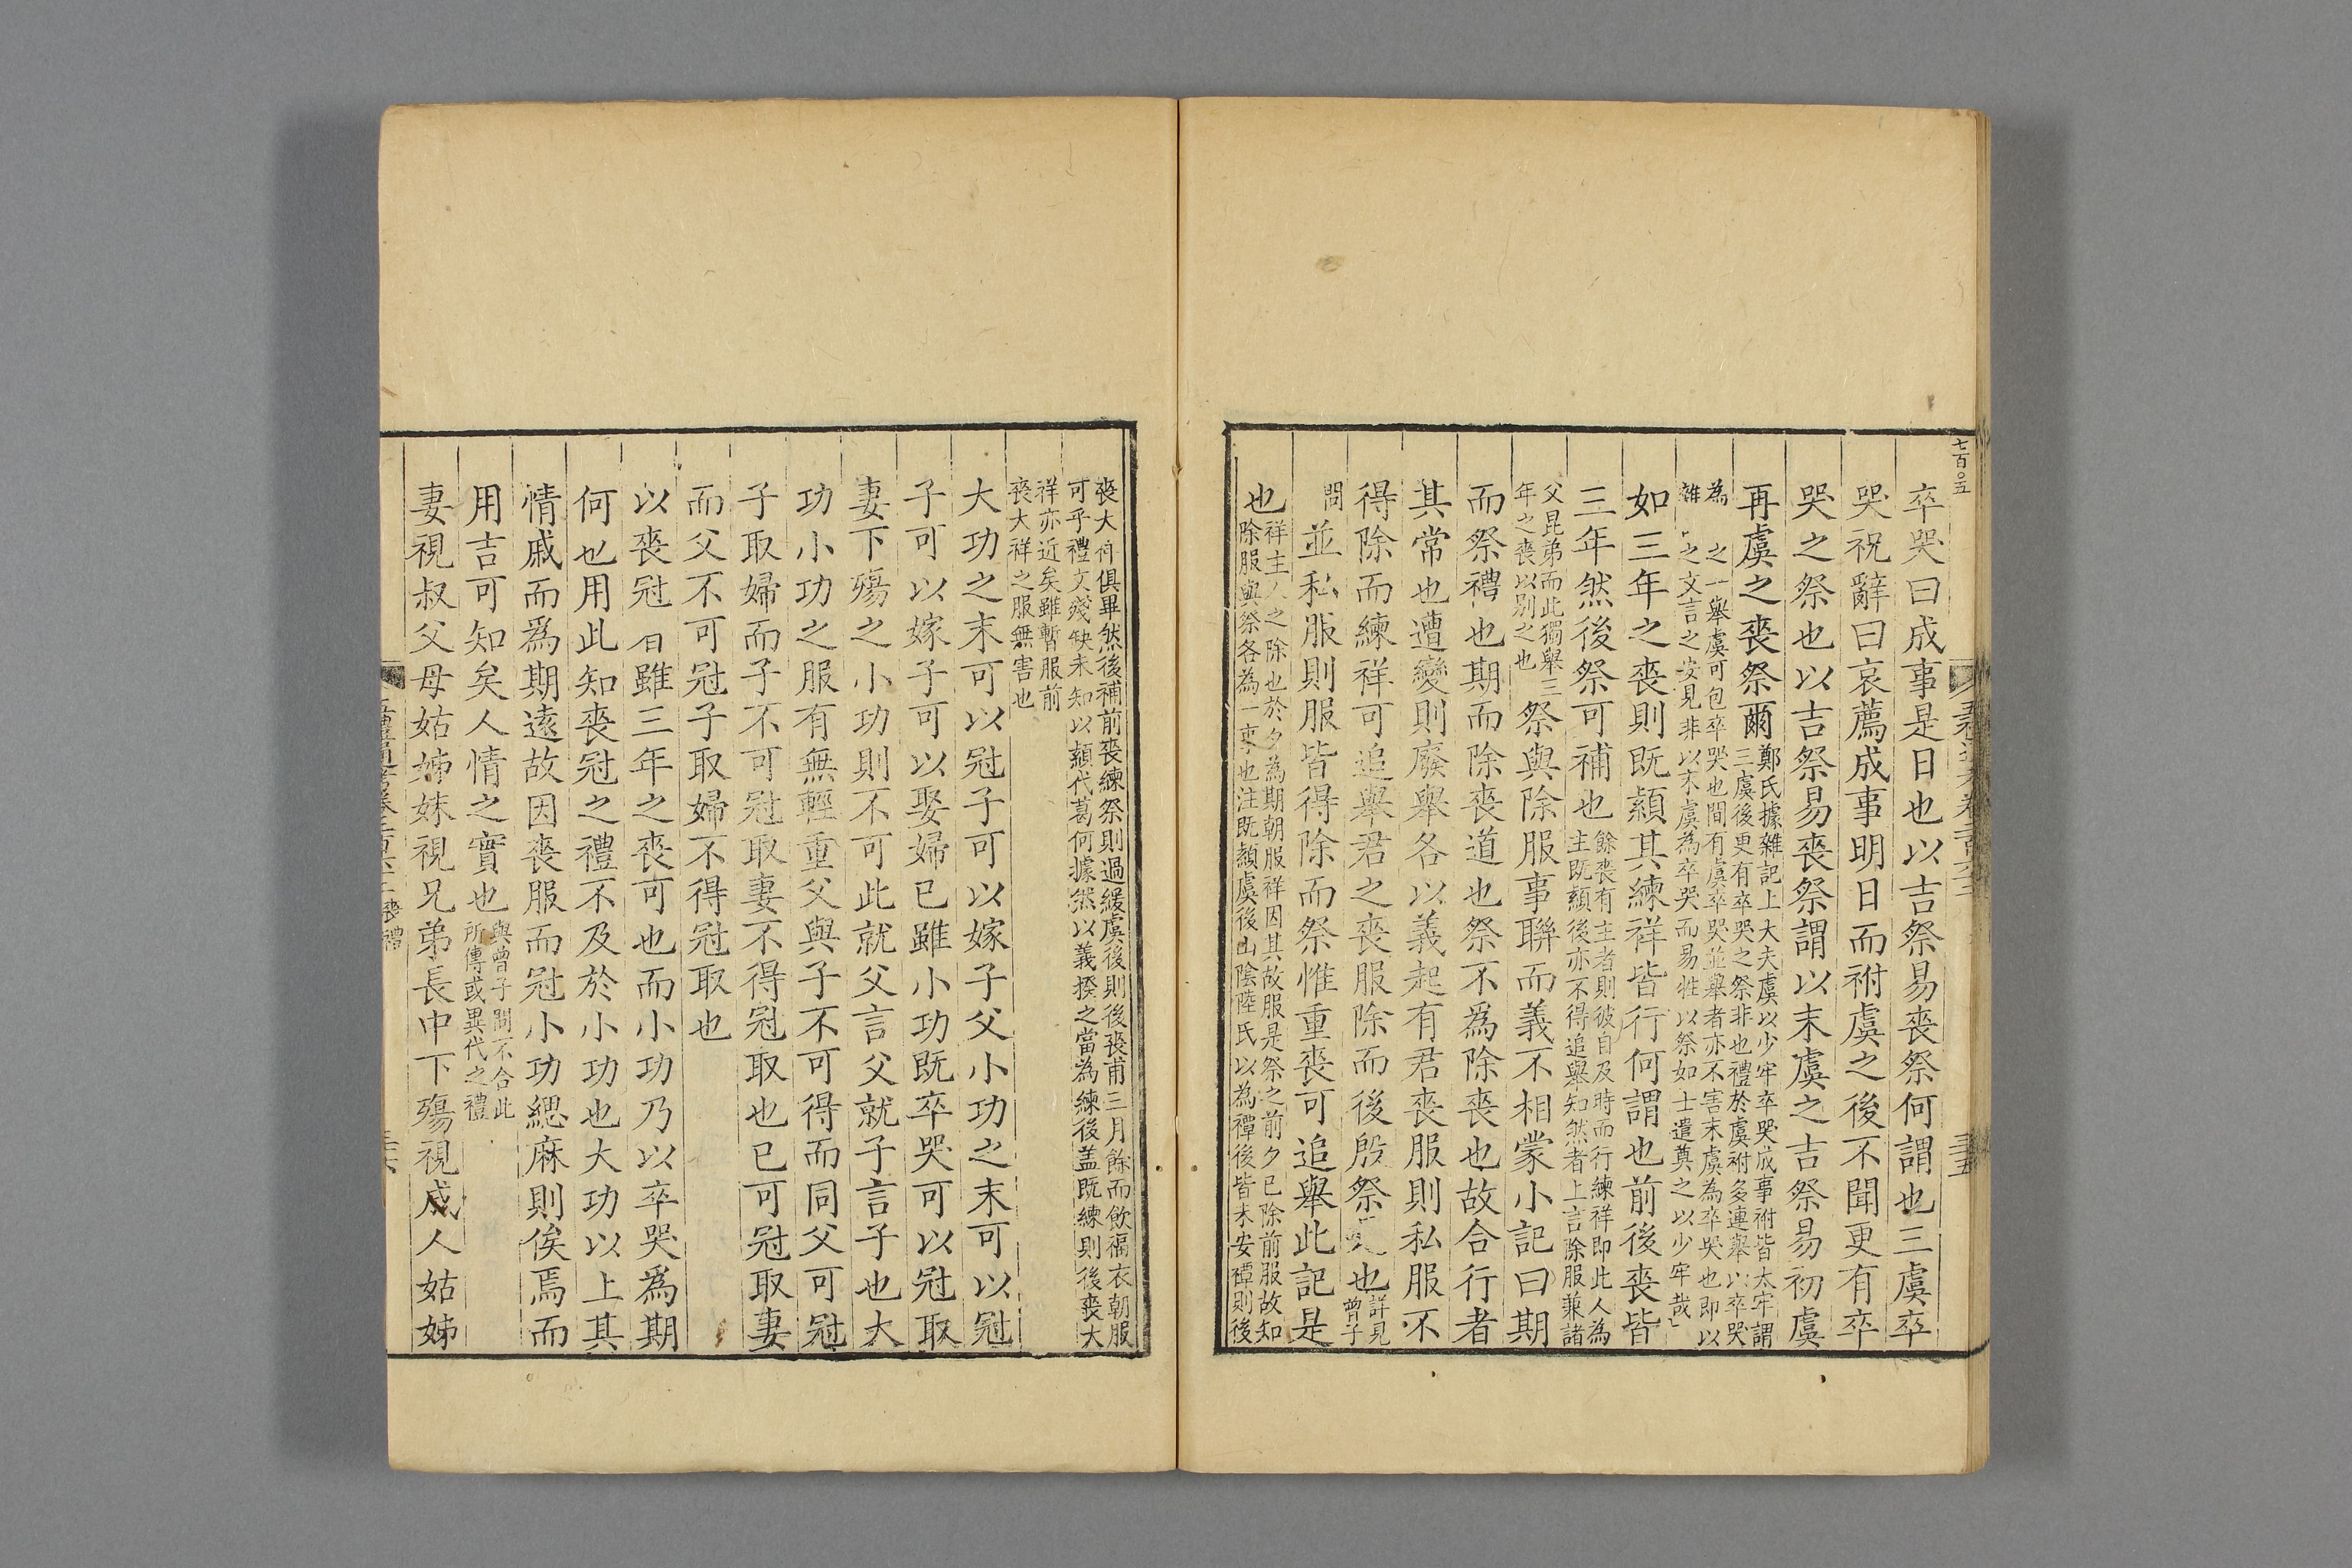 七百〇五
卒哭曰成事是日也以吉祭易喪祭何謂也三虞卒
哭祝辭曰哀薦成事明日而祔虞之後不聞更有卒
哭之祭也以吉祭易喪祭謂以末虞之吉祭易初虞
再虞之喪祭爾
鄭氏據雜記上大夫虞以少牢卒哭成事祔皆太牢謂
三虞後更有卒哭之祭非也禮於虞祔多連舉以卒哭
為 之一舉虞可包卒哭也間有虞卒哭並舉者亦不害末虞為卒哭也即以
雜 之文言之安見非以末虞為卒哭而易牲以祭如士遣奠之以少牢哉
如三年之喪則既顈其練祥皆行何謂也前後喪皆
三年然後祭可補也
餘喪有主者則彼自及時而行練祥即此人為
主既顈後亦不得追舉知然者上言除服兼諸
父昆弟而此獨舉三
年之喪以別之也
祭與除服事聯而義不相蒙小記曰期
而祭禮也期而除喪道也祭不為除喪也故合行者
其常也遭變則廢舉各以義起有君喪服則私服不
得除而練祥可追舉君之喪服除而後殷祭 也
詳見
曾子
問
並私服則服皆得除而祭惟重喪可追舉此記是
也
祥主人之除也於夕為期朝服祥因其故服是祭之前夕已除前服故知
除服與祭各為一事也注既顈虞後山陰陸氏以為禫後皆未安禫則後
喪大祥俱畢然後補前喪練祭則過緩虞後則後喪甫三月餘而飲福衣朝服
可乎禮文殘缺未知以顈代葛何據然以義揆之當為練後蓋既練則後喪大
祥亦近矣雖暫服前
喪大祥之服無害也
大功之末可以冠子可以嫁子父小功之末可以冠
子可以嫁子可以娶婦已雖小功既卒哭可以冠取
妻下殤之小功則不可此就父言父就子言子也大
功小功之服有無輕重父與子不可得而同父可冠
子取婦而子不可冠取妻不得冠取也已可冠取妻
而父不可冠子取婦不得冠取也
以喪冠 曰雖三年之喪可也而小功乃以卒哭為期
何也用此知喪冠之禮不及於小功也大功以上其
情戚而為期遠故因喪服而冠小功緦麻則俟焉而
用吉可知矣人情之實也
與曾子問不合此
所傳或異代之禮
妻視叔父母姑姊妹視兄弟長中下殤視成人姑姊